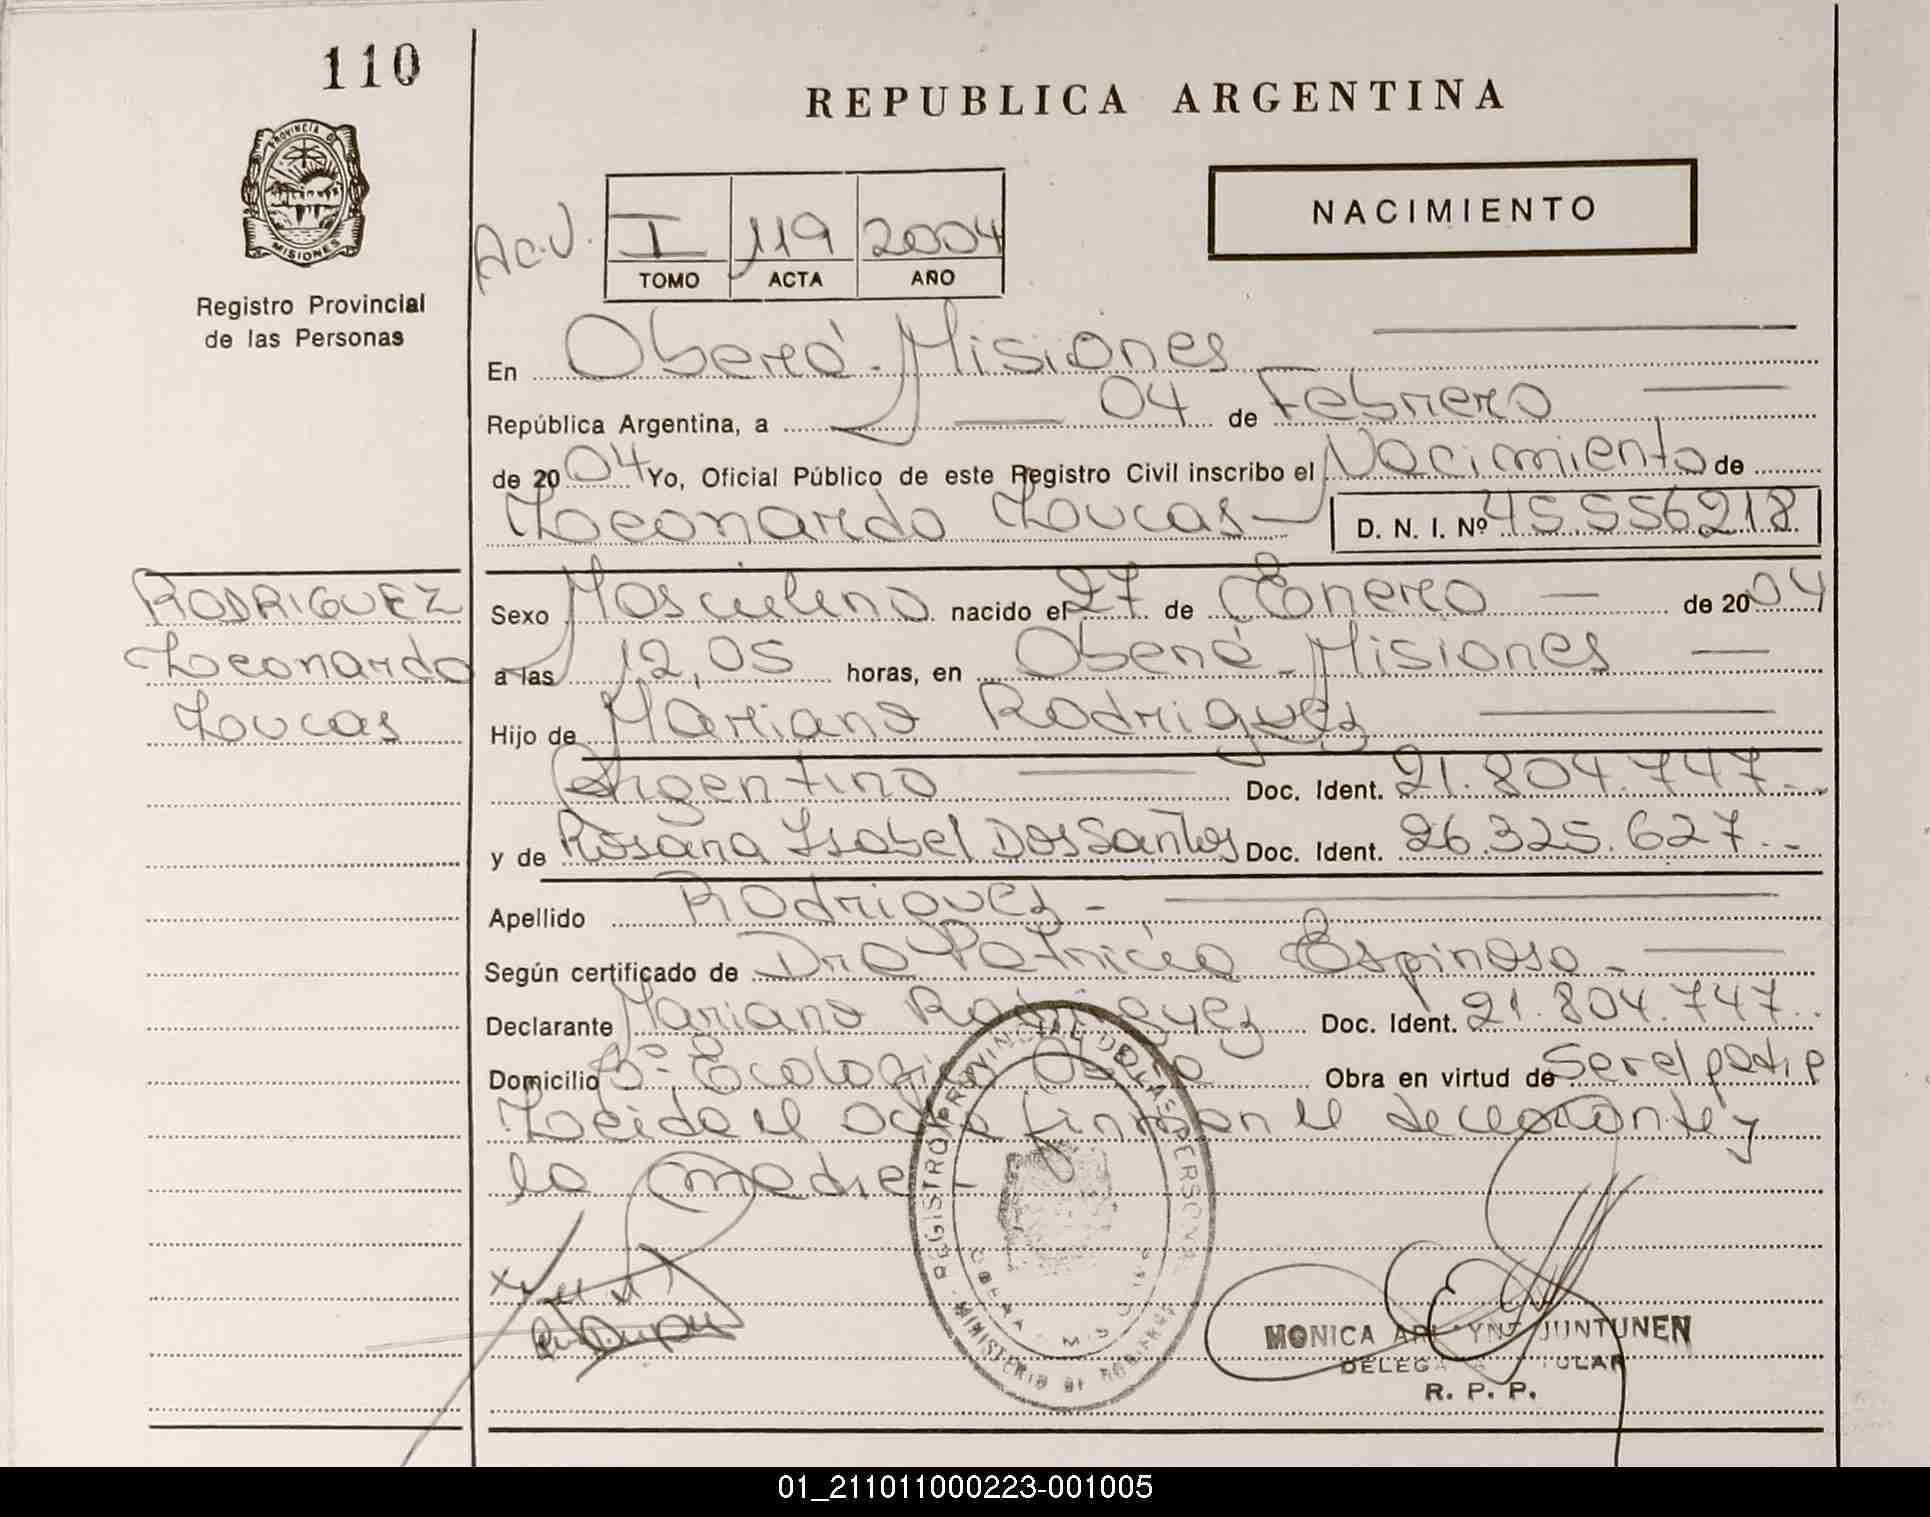 110
REPUBLICA ARGENTINA
PROVINCIA DE
MISIONES
Registro Provincial
de las Personas
NACIMIENTO
Ac.V. I 119 2004
TOMO ACTA AÑO
En Oberá-Misiones
República Argentina, a 04 de Febrero
de 2004 Yo, Oficial Público de este Registro Civil inscribo el Nacimiento de
Leonardo Loucas D. N. I. Nº 45.556218
RODRIGUEZ
Leonardo
Loucas
Sexo Masculino nacido el 27 de Enero de 2004
a las 12,05 horas, en Oberá-Misiones
Hijo de Mariano Rodriguez
Argentino Doc. Ident. 21.804.747.-
y de Rosana Isabel Dos Santos Doc. Ident. 26.325.627.-
Apellido Rodriguez-
Según certificado de Dra Patricia Espinosa.
Declarante Mariano Rodriguez Doc. Ident. 21.804.747.
Domicilio Bº Ecologia Oberá Obra en virtud de Ser el padre
Leida el acta firman el declarante y
la madre-
REGISTRO PROVINCIAL DE LAS PERSONAS
OBERA - MISIONES
MINISTERIO DE GOBIERNO
MONICA JUNTUNEN
R. P. P.
01_211011000223-001005